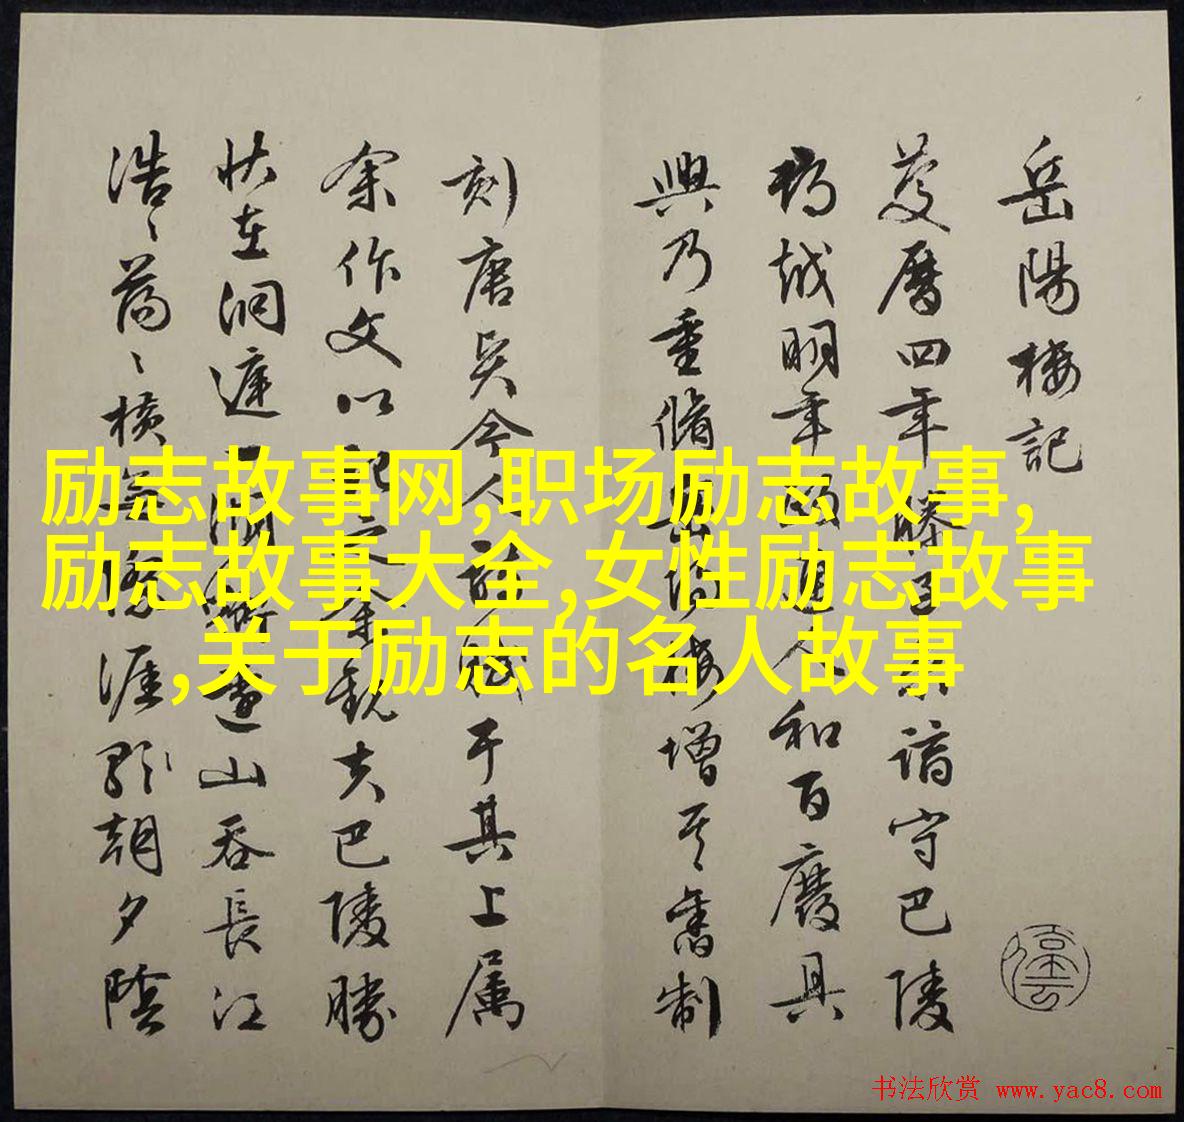 岳陽樓記
慶曆四年滕子京謫守巴陵
郡越明年政通人和百廢具
興乃重脩岳陽樓增其舊制
刻唐賢今人詩賦于其上属
余作文以記之余觀夫巴陵勝
狀在洞庭一湖銜遠山吞長江
浩〻蕩〻橫無際涯朝夕陰
励志故事网,职场励志故事,
励志故事大全,女性励志故事
,关于励志的名人故事
书法欣赏 www.yac8.com